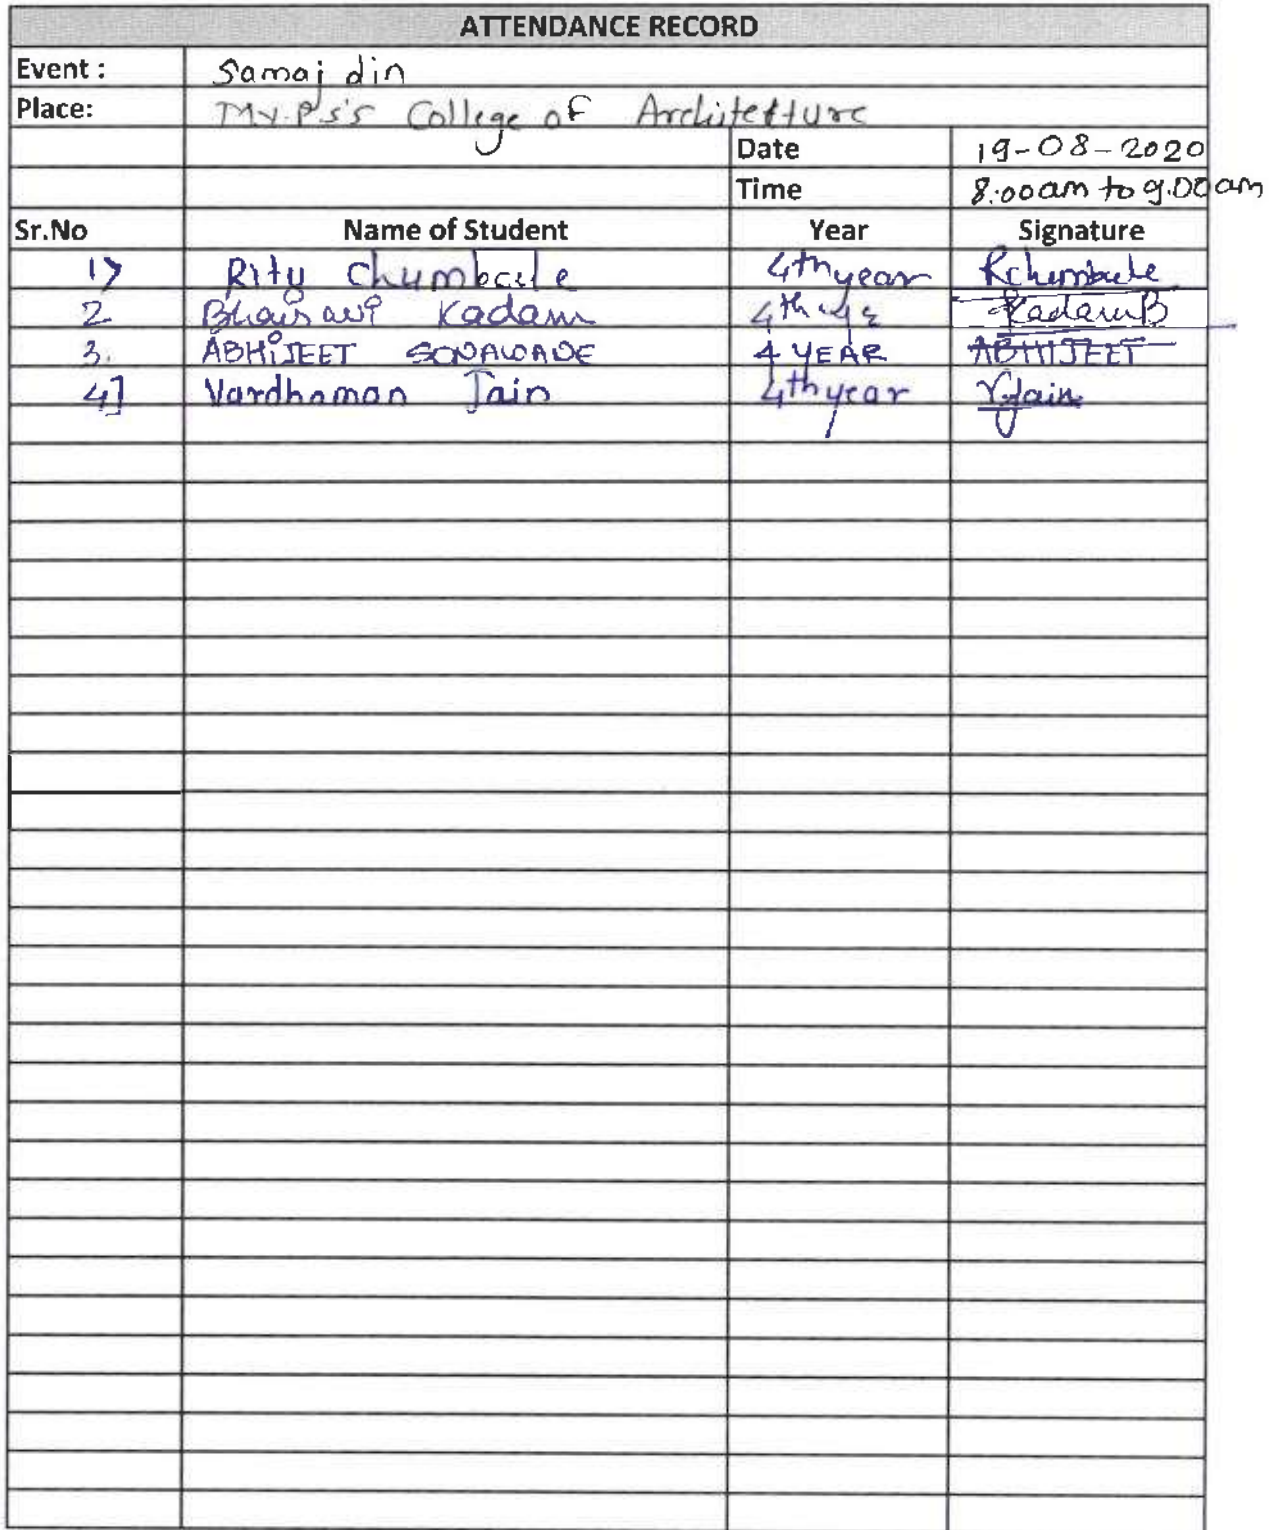 ATTENDANCE RECORD
Event : Samaj din
Place: MV.PS's College of Architetture
Date 19-08-2020
Time 8.00am to 9.00am
Sr.No Name of Student Year Signature
1) Ritu Chumbale 4th year Rchumbale
2 Bhairavi Kadam 4th KadamB
3. ABHIJEET SONAWANE 4 YEAR ABHIJEET
4] Vardhaman Jain 4th year VJain